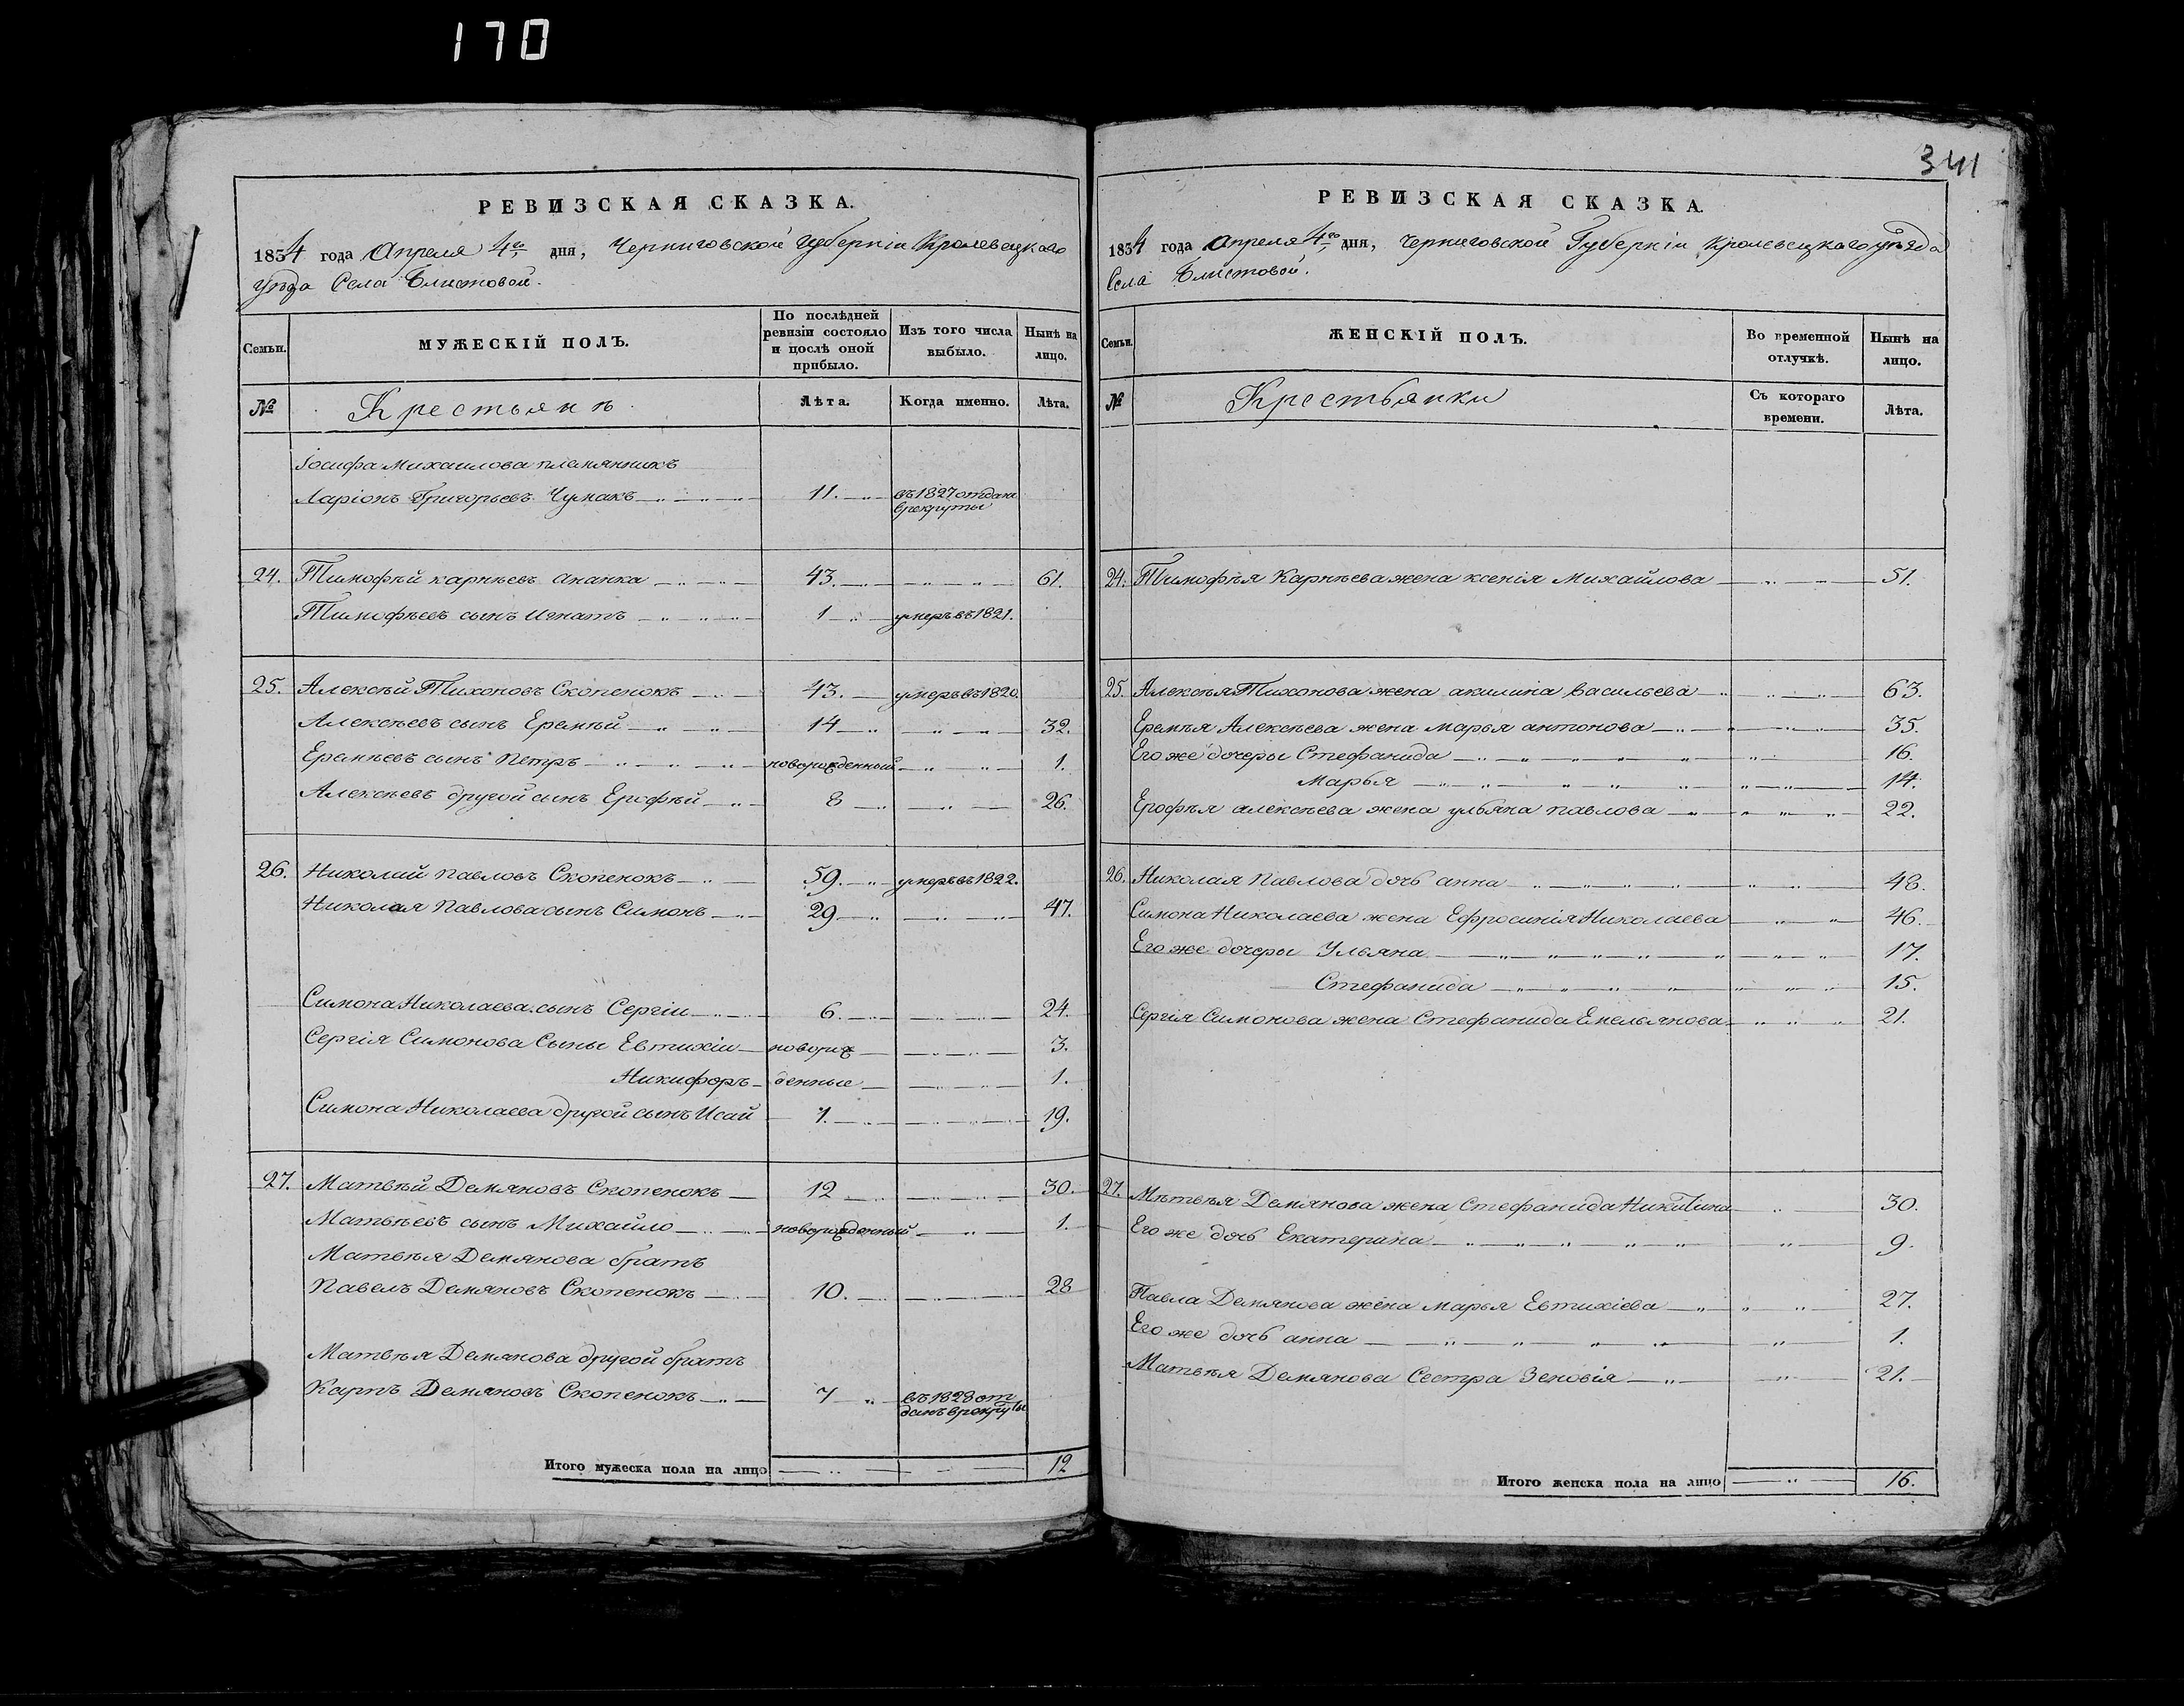 170
341
РЕВИЗСКАЯ СКАЗКА.
1834 года Апреля 4го дня, Черниговской Губерніи Кролевецкаго
уѣзда Села Блистовой.
Семьи.
МУЖЕСКІЙ ПОЛЪ.
По послѣдней ревизіи состояло и послѣ оной прибыло.
Изъ того числа выбыло.
Нынѣ на лицо.
№
Крестьянъ
Лѣта.
Когда именно.
Лѣта.
Іосифа Михаилова племянникъ
Ларіонъ Григорьевъ Чумакъ 11. въ 1827 отданъ
врекруты
24. Тимофѣй карнѣевъ ананка 43. 61.
Тимофѣевъ сынъ Игнатъ 1 умеръ въ 1821.
25. Алексѣй Тихоновъ Скопенокъ 43. умеръ въ 1820.
Алексѣевъ сынъ Еремѣй 14 32.
Еремѣевъ сынъ Петръ новорожденный 1.
Алексѣевъ другой сынъ Ерофѣй 8 26.
26. Николай Павловъ Скопенокъ 59. умеръ въ 1822.
Николая Павлова сынъ Симонъ 29 47.
Симона Николаева сынъ Сергіи 6. 24.
Сергія Симонова Сыны Евтихіи новорож 3.
Никифоръ денные 1.
Симона Николаева другой сынъ Исай 1. 19.
27. Матвѣй Демяновъ Скопенокъ 12 30.
Матвѣевъ сынъ Михайло новорожденный 1.
Матвѣя Демянова братъ
Павелъ Демяновъ Скопенокъ 10. 28
Матвѣя Демянова другой братъ
Карпъ Демяновъ Скопенокъ 7 въ 1828 от
данъ врекруты
Итого мужеска пола на лицо 12
РЕВИЗСКАЯ СКАЗКА.
1834 года Апреля 4го дня, Черниговской Губерніи Кролевецкаго уѣзда
Села Блистовой.
Семьи.
ЖЕНСКІЙ ПОЛЪ.
Во временной отлучкѣ.
Нынѣ на лицо.
№
Крестьянки
Съ котораго времени.
Лѣта.
24. Тимофѣя Карнѣева жена ксенія Михайлова 51.
25. Алексѣя Тихонова жена акилина Васильева 63.
Еремѣя Алексѣева жена марья антонова 35.
Его же дочеры Стефанида 16.
Марья 14.
Ерофѣя алексѣева жена ульяна павлова 22.
26. Николая Павлова дочь анна 48.
Симона Николаева жена Ефросинія Николаева 46.
Его же дочеры Ульяна 17.
Стефанида 15.
Сергія Симонова жена Стефанида Емельянова 21.
27. Матвѣя Демянова жена Стефанида Никитина 30.
Его же дочь Екатерина 9.
Павла Демянова жена марья Евтихіева 27.
Его же дочь анна 1.
Матвѣя Демянова Сестра Зеновія 21.
Итого женска пола на лицо 16.